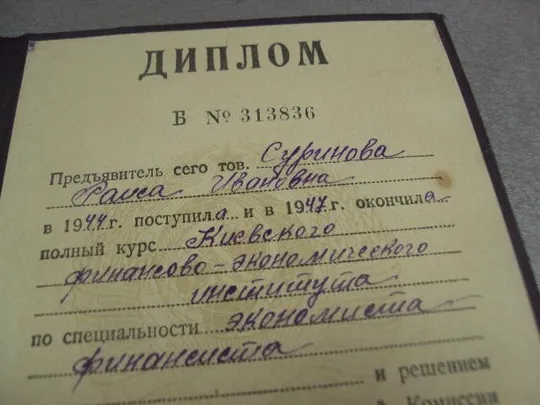 ДИПЛОМ
Б № 313836
Предъявитель сего тов. Суринова
Раиса Ивановна
в 1944 г. поступила и в 1947 г. окончила
полный курс Киевского
финансово-экономического
института
по специальности экономиста
финансиста
и решением
Комиссии